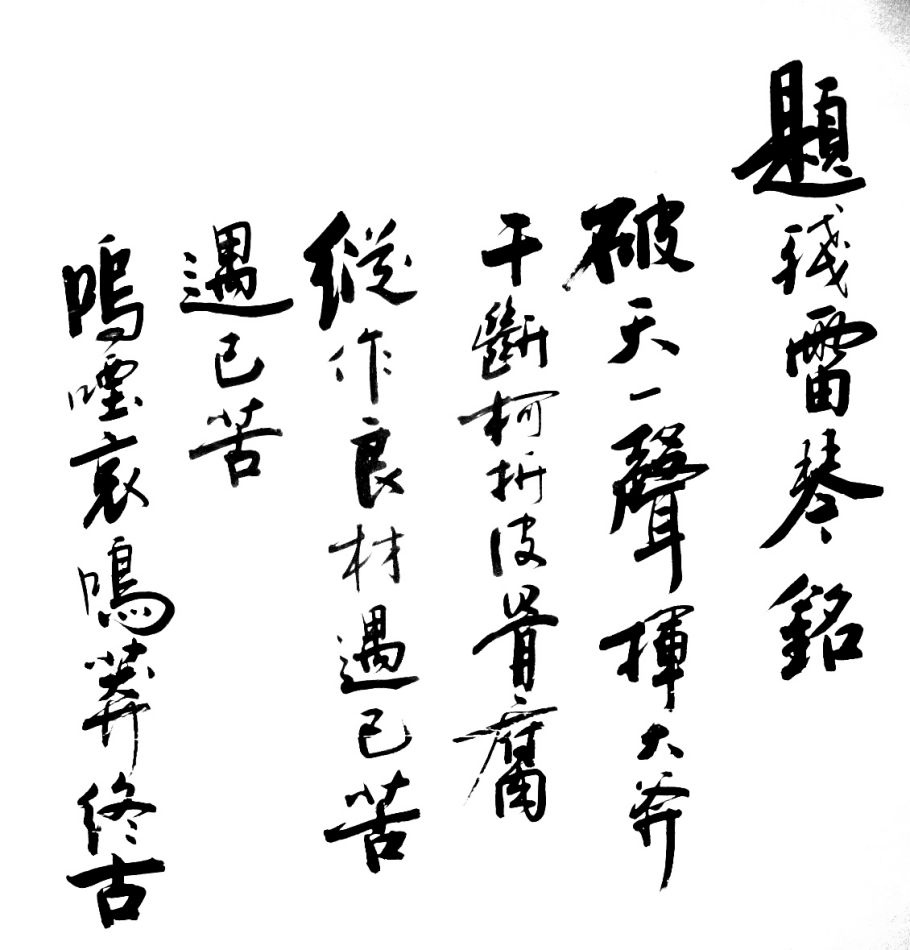 題殘雷琴銘
破天一聲揮大斧
干斷柯折皮骨腐
縱作良材遇已苦
遇已苦
嗚咽哀鳴莽終古